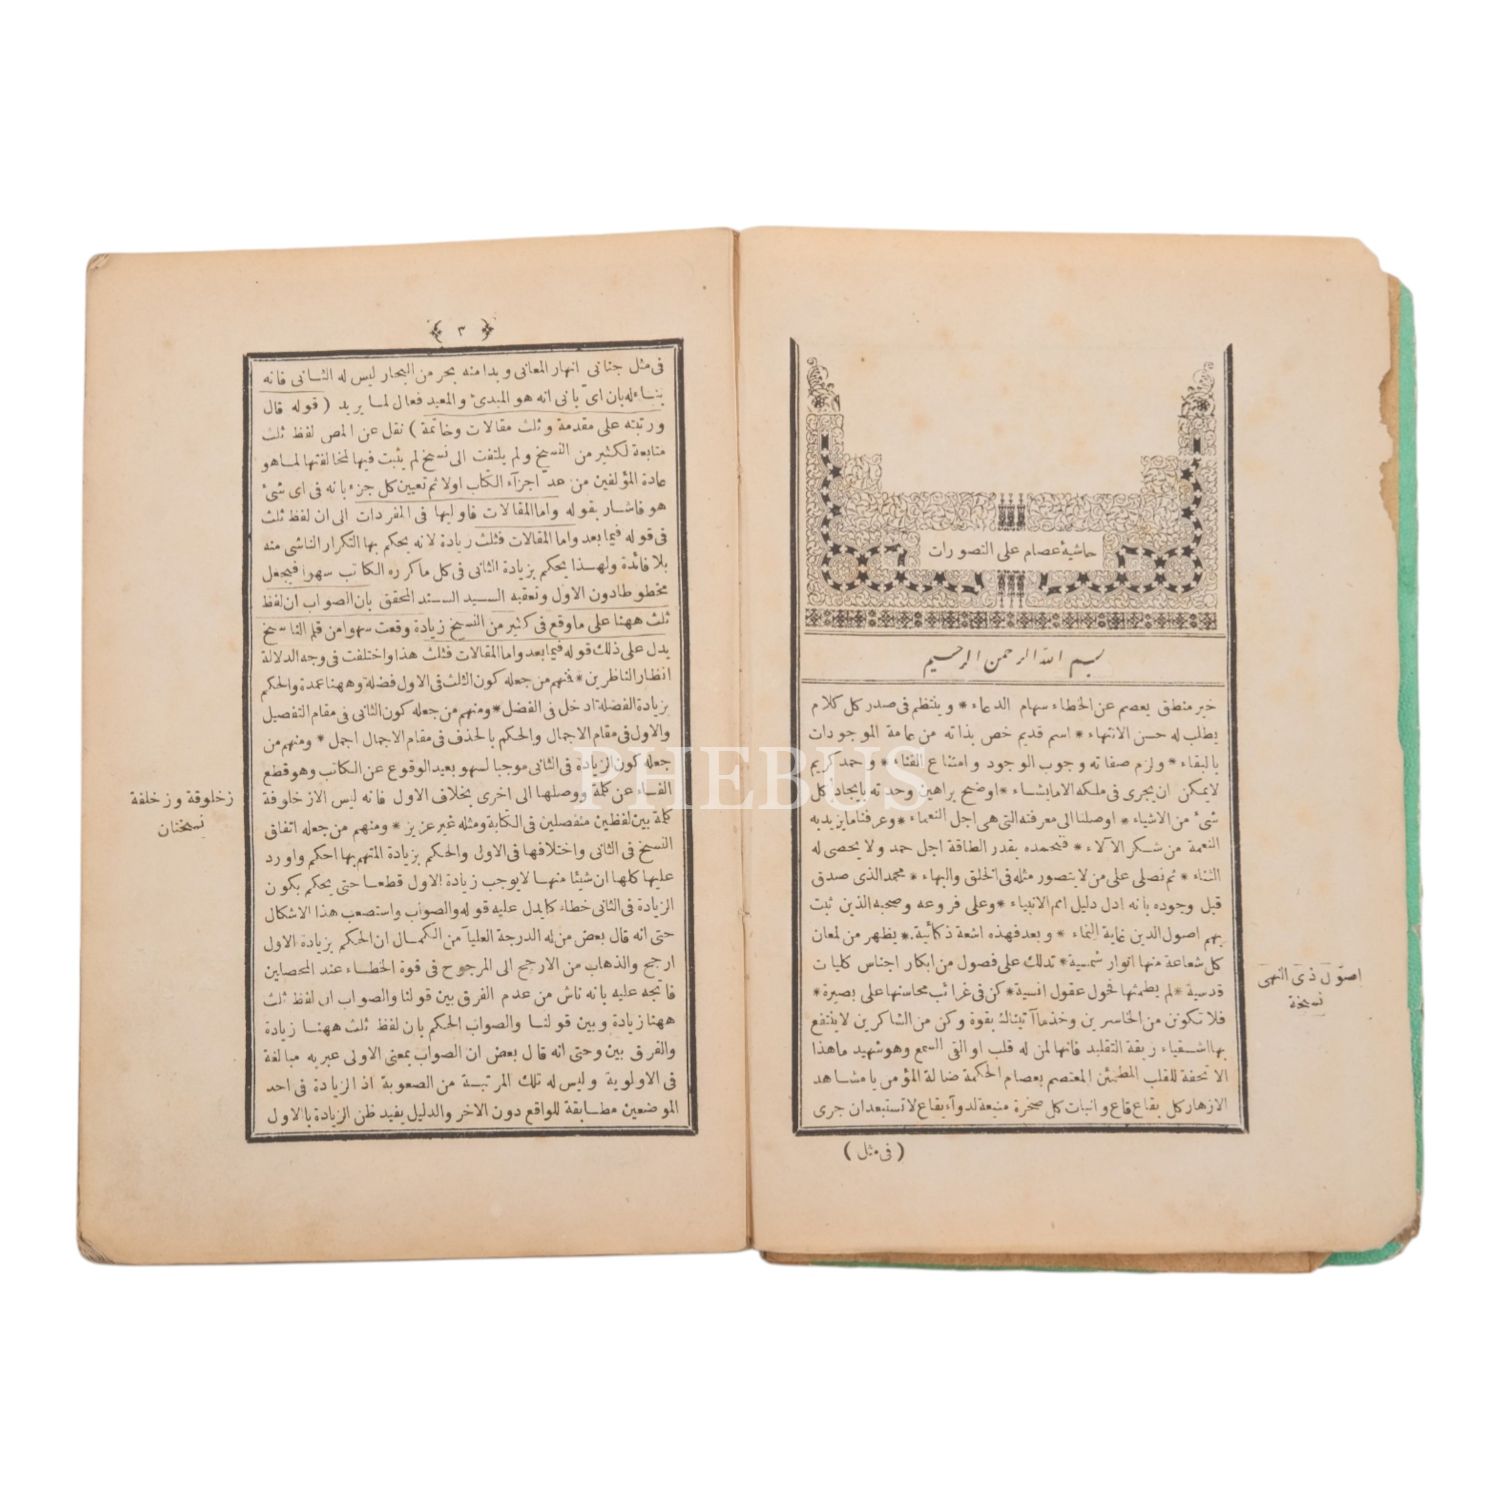 حاشيهٔ عصام على التصورات
بسم الله الرحمن الرحيم
خير منطق يعصم عن الخطاء سهام الدعاء * وينتظم فى صدر كل كلام
يطلب له حسن الانتهاء * اسم قديم خص بذاته من عامة الموجودات
بالبقاء * ولزم صفاته وجوب الوجود وامتناع الفناء * وحمد كريم
لايمكن ان يجرى فى ملكه الا مايشاء * اوضح براهين وحدته بايجاد كل
شئ من الاشياء * اوصلنا الى معرفته التى هى اجل النعماء * وعرفنا مايزيد به
النعمة من شكر الآلاء * فنحمده بقدر الطاقة اجل حمد ولا يحصى له
الثناء * ثم نصلى على من لا يتصور مثله فى الخلق والبهاء * محمد الذى صدق
قبل وجوده بانه ادل دليل امم الانبياء * وعلى فروعه وصحبه الذين ثبت
بهم اصول الدين غاية النماء * وبعد فهذه اشعة ذكائية * يظهر من لمعان
كل شعاعة منها انوار شمسية * تدلك على فصول من ابكار اجناس كليات
قدسية * لم يطمثها فحول عقول انسية * كن فى غرائب محاسنها على بصيرة *
فلا تكونن من الخاسرين وخذ ما آتيناك بقوة وكن من الشاكرين لا ينتفع
بها اشقياء ربقة التقليد فانها لمن له قلب او القى السمع وهو شهيد ما هذا
الا تحفة للقلب المطمئن المعتصم بعصام الحكمة ضالة المؤمن يا مشاهد
الازهار كل بقاع قاع وانبات كل صخرة منبعة لدواء بقاع لا تستبعد ان جرى
( فى مثل )
اصول ذى النهى
نسخة
٣
فى مثل جنانى انهار المعانى وبدا منه بحر من البحار ليس له الثانى فانه
بناء له بان اىّ بانى انه هو المبدئ والمعيد فعال لما يريد ( قوله قال
ورتبته على مقدمة وثلث مقالات وخاتمة ) نقل عن المص لفظ ثلث
متابعة لكثير من النسخ ولم يلتفت الى نسخ لم يثبت فيها لمخالفتها لما هو
عادة المؤلفين من عدّ اجزآء الكتاب اولا ثم تعيين كل جزء بانه فى اى شئ
هو فاشار بقوله واما المقالات فاوليها فى المفردات الى ان لفظ ثلث
فى قوله فيما بعد واما المقالات فثلث زيادة لانه يحكم بها التكرار الناشى منه
بلا فائدة ولهذا يحكم بزيادة الثانى فى كل ما كرره الكاتب سهوا فيجعل
مخطوطا دون الاول وتعقبه السيد السند المحقق بان الصواب ان لفظ
ثلث ههنا على ما وقع فى كثير من النسخ زيادة وقعت سهوا من قلم الناسخ
يدل على ذلك قوله فيما بعد واما المقالات فثلث هذا واختلفت فى وجه الدلالة
انظار الناظرين * فمنهم من جعله كون الثلث فى الاول فضلة وههنا عمدة والحكم
بزيادة الفضلة ادخل فى الفضل * ومنهم من جعله كون الثانى فى مقام التفصيل
والاول فى مقام الاجمال والحكم بالحذف فى مقام الاجمال اجمل * ومنهم من
جعله كون الزيادة فى الثانى موجبا لسهو بعيد الوقوع عن الكاتب وهو قطع
الفاء عن كلمة ووصلها الى اخرى بخلاف الاول فانه ليس الا زخلوفة
كلمة بين لفظين منفصلين فى الكتابة ومثله غير عزيز * ومنهم من جعله اتفاق
النسخ فى الثانى واختلافها فى الاول والحكم بزيادة المتهم بها احكم واورد
عليها كلها ان شيئا منها لا يوجب زيادة الاول قطعا حتى يحكم بكون
الزيادة فى الثانى خطاء كما يدل عليه قوله والصواب واستصعب هذا الاشكال
حتى انه قال بعض من له الدرجة العليا من الكمال ان الحكم بزيادة الاول
ارجح والذهاب من الارجح الى المرجوح فى قوة الخطاء عند المحصلين
فاتجه عليه بانه ناش من عدم الفرق بين قولنا والصواب ان لفظ ثلث
ههنا زيادة وبين قولنا والصواب الحكم بان لفظ ثلث ههنا زيادة
والفرق بين وحتى انه قال بعض ان الصواب بمعنى الاولى عبر به مبالغة
فى الاولوية وليس له تلك المرتبة من الصعوبة اذ الزيادة فى احد
الموضعين مطابقة للواقع دون الاخر والدليل يفيد ظن الزيادة بالاول
زخلوقة وزخلفة
نسختان
PHEBUS